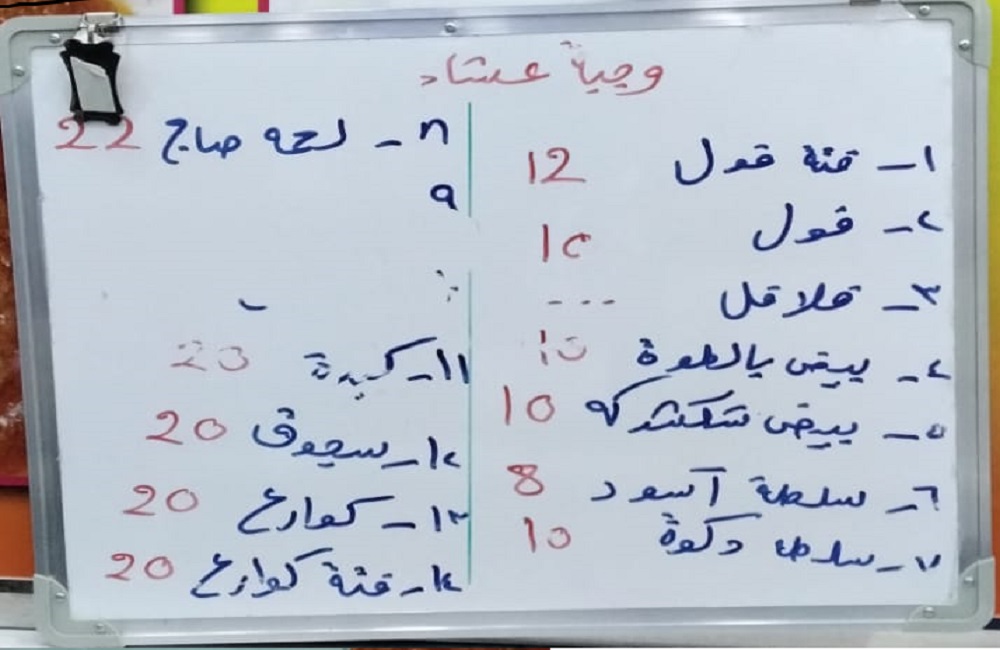 وجبة عشاء
١- فتة فول 12
٢- فول 10
٣- فلافل ---
٤- بيض بالطوة 10
٥- بيض شكشوكه 10
٦- سلطة آسود 8
٧- سلطه دكوة 10
٨- لحمه صاج 22
٩
١١- كبدة 20
١٢- سجوق 20
١٣- كوارع 20
١٤- فتة كوارع 20